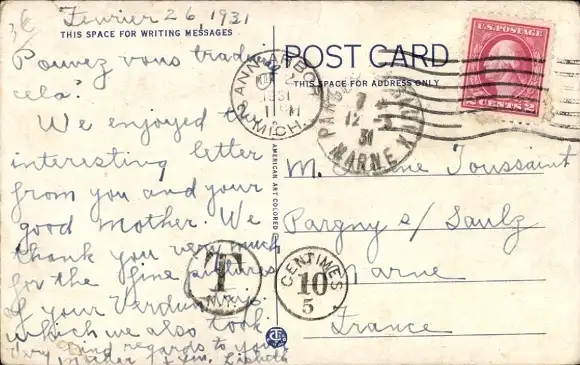 Fevrier 26, 1931
THIS SPACE FOR WRITING MESSAGES
Pouvez vous traduire
cela?
We enjoyed the
interesting letter
from you and your
good mother. We
thank you very much
for the fine pictures
of your Verdun
which we also took
and regards to your
Mother
POST CARD
THIS SPACE FOR ADDRESS ONLY
ANN ARBOR
1931
MICH.
12
31
MARNE
U.S. POSTAGE
2 CENTS 2
AMERICAN ART COLORED
M. Toussaint
Pargny s/ Saulz
Marne
France
T
N.Y.
CENTIMES
10
5